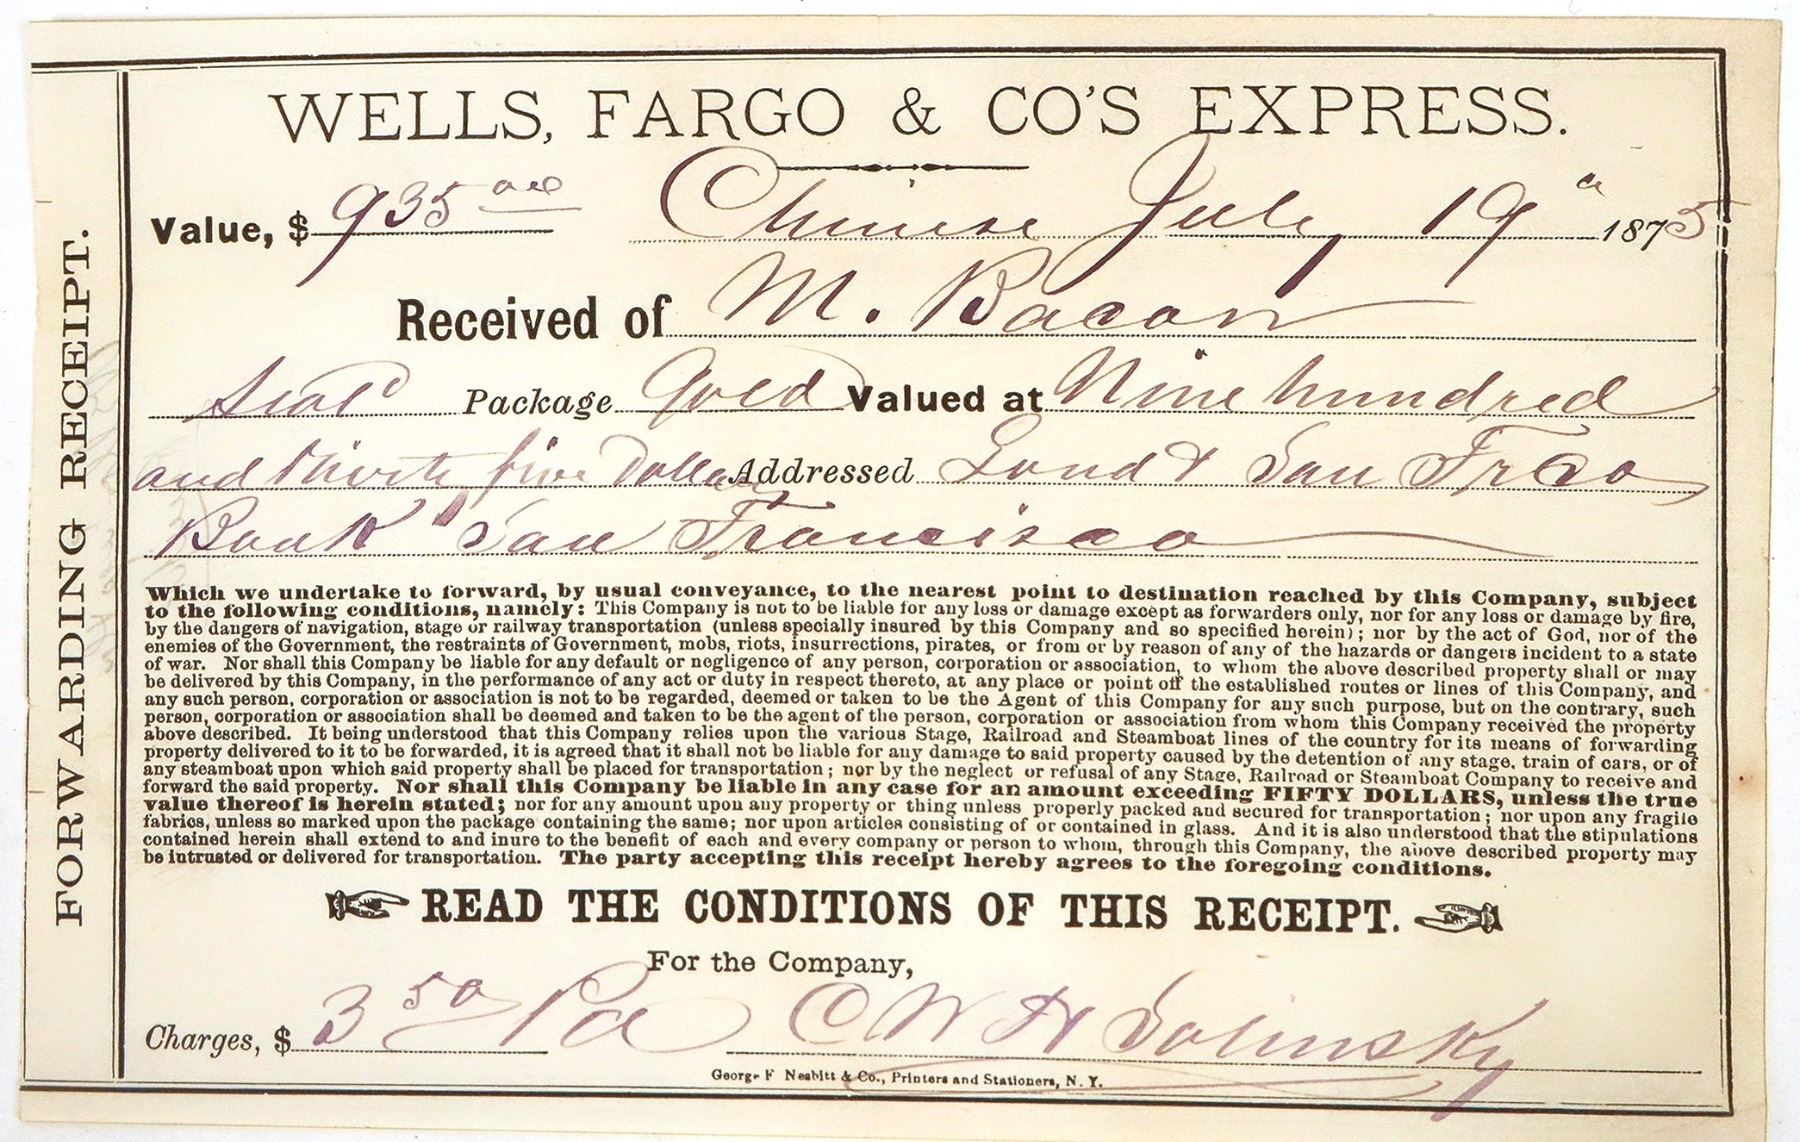 WELLS, FARGO & CO'S EXPRESS.
Value, $ 935 00 Chinese July 19 1875
Received of M. Bacon
Seal'd Package Gold Valued at Nine hundred
and thirty five Dollars Addressed Lond & San Frco
Bank San Francisco
Which we undertake to forward, by usual conveyance, to the nearest point to destination reached by this Company, subject
to the following conditions, namely: This Company is not to be liable for any loss or damage except as forwarders only, nor for any loss or damage by fire,
by the dangers of navigation, stage or railway transportation (unless specially insured by this Company and so specified herein); nor by the act of God, nor of the
enemies of the Government, the restraints of Government, mobs, riots, insurrections, pirates, or from or by reason of any of the hazards or dangers incident to a state
of war. Nor shall this Company be liable for any default or negligence of any person, corporation or association, to whom the above described property shall or may
be delivered by this Company, in the performance of any act or duty in respect thereto, at any place or point off the established routes or lines of this Company, and
any such person, corporation or association is not to be regarded, deemed or taken to be the Agent of this Company for any such purpose, but on the contrary, such
person, corporation or association shall be deemed and taken to be the agent of the person, corporation or association from whom this Company received the property
above described. It being understood that this Company relies upon the various Stage, Railroad and Steamboat lines of the country for its means of forwarding
property delivered to it to be forwarded, it is agreed that it shall not be liable for any damage to said property caused by the detention of any stage, train of cars, or of
any steamboat upon which said property shall be placed for transportation; nor by the neglect or refusal of any Stage, Railroad or Steamboat Company to receive and
forward the said property. Nor shall this Company be liable in any case for an amount exceeding FIFTY DOLLARS, unless the true
value thereof is herein stated; nor for any amount upon any property or thing unless properly packed and secured for transportation; nor upon any fragile
fabrics, unless so marked upon the package containing the same; nor upon articles consisting of or contained in glass. And it is also understood that the stipulations
contained herein shall extend to and inure to the benefit of each and every company or person to whom, through this Company, the above described property may
be intrusted or delivered for transportation. The party accepting this receipt hereby agrees to the foregoing conditions.
READ THE CONDITIONS OF THIS RECEIPT.
For the Company,
Charges, $ 3 50 Pd C W H Solinsky
George F Nesbitt & Co., Printers and Stationers, N. Y.
FORWARDING RECEIPT.